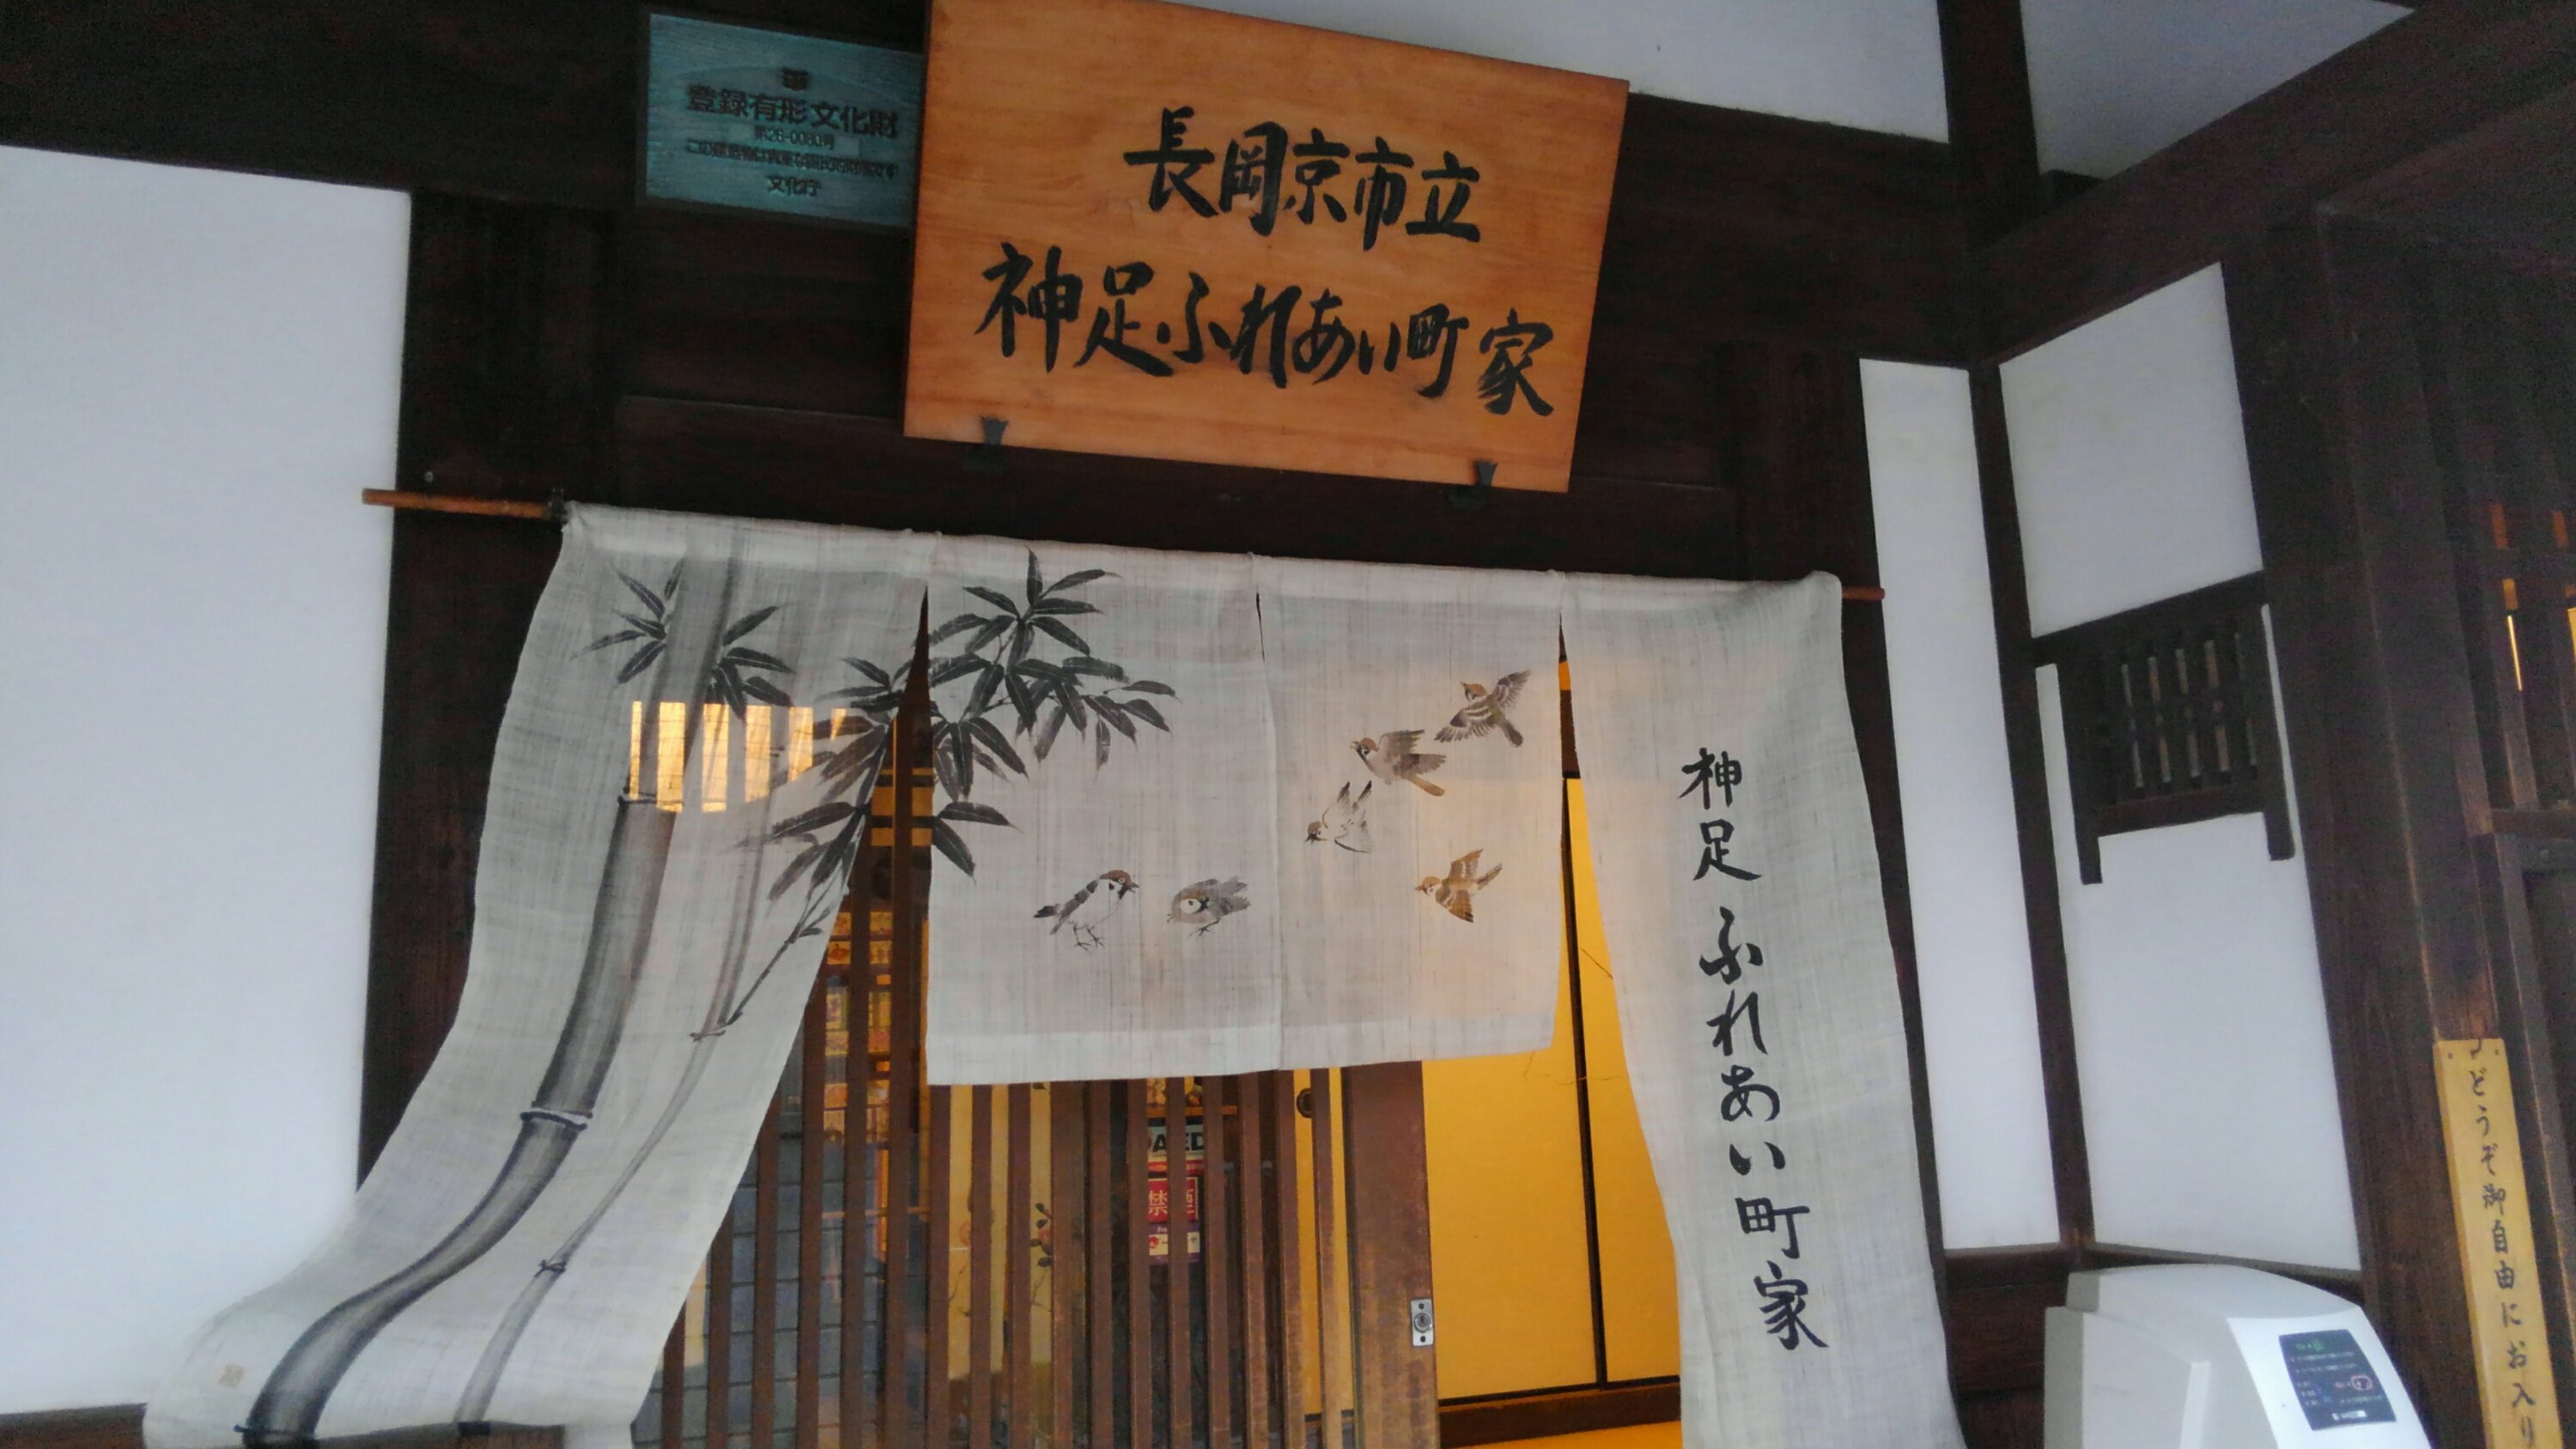 登録有形文化財
第26-0080号
この建造物は貴重な国民的財産です
文化庁
長岡京市立
神足ふれあい町家
神足ふれあい町家
AED
禁煙
どうぞ御自由にお入り